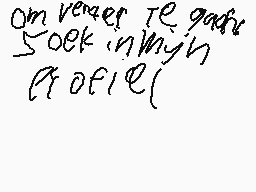 om verder te gaan
zoek in mijn
profiel